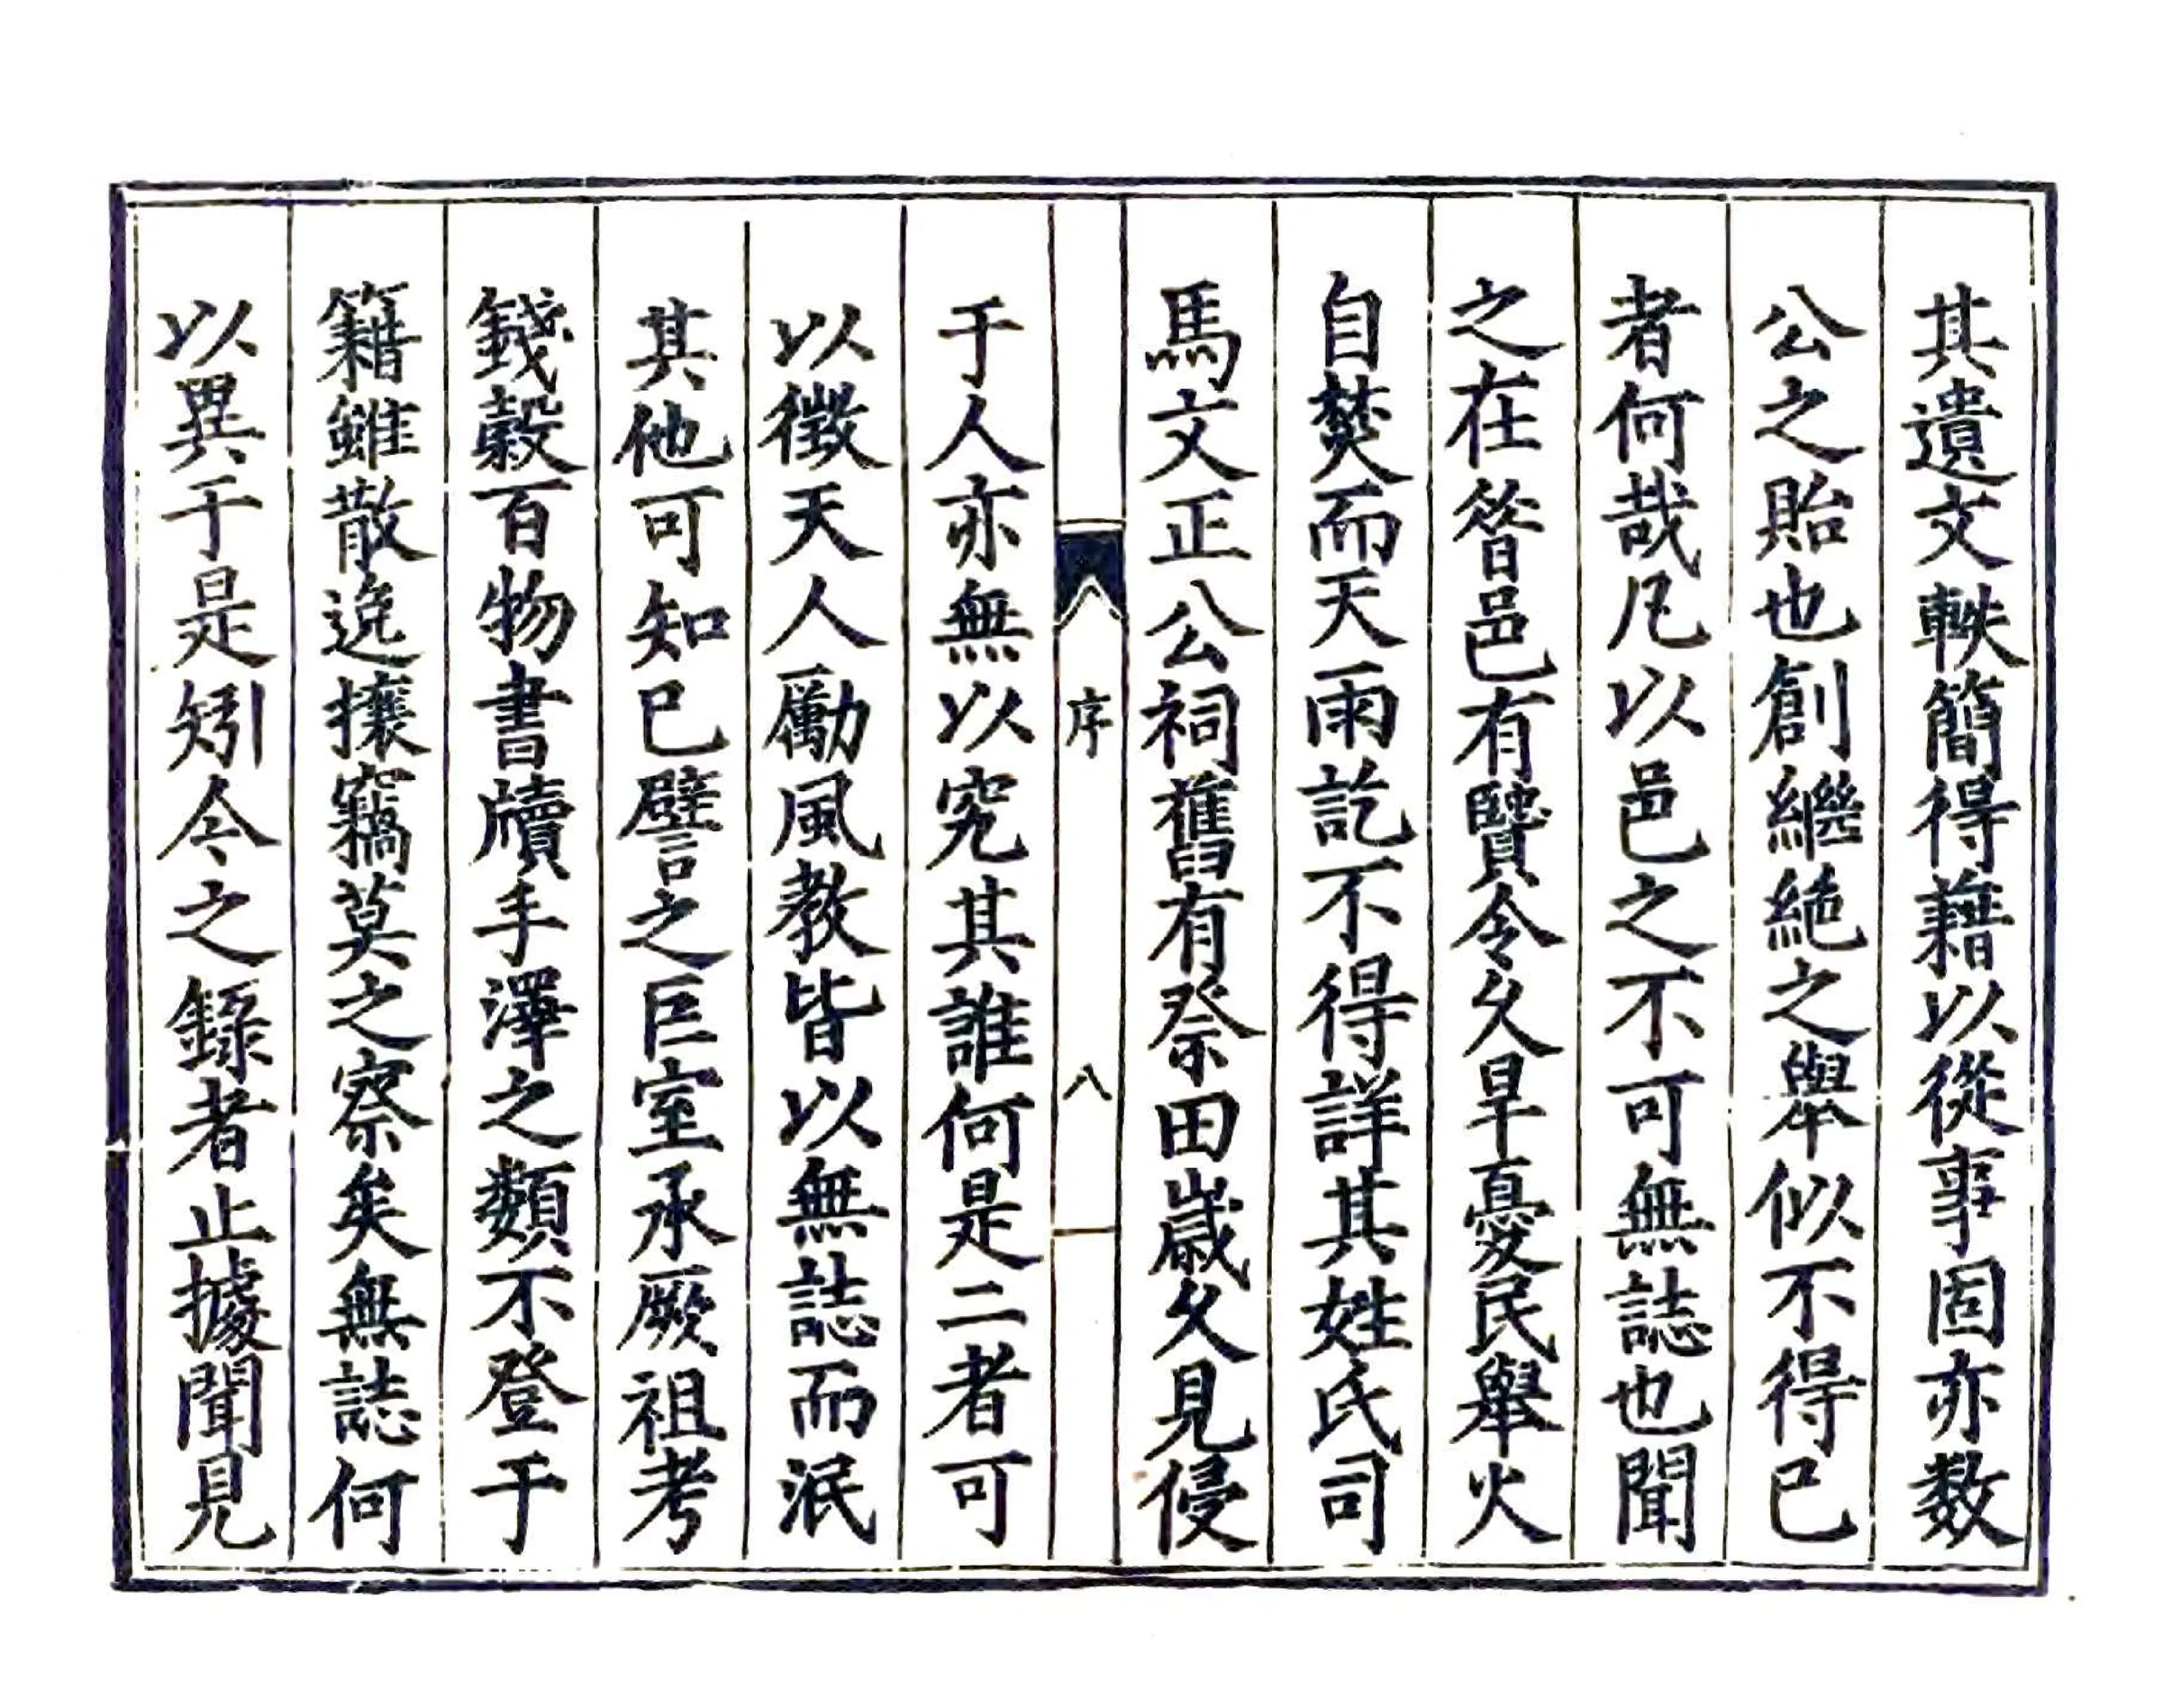 其遺文軼簡得藉以從事固亦数
公之貽也創繼絕之舉似不得已
者何哉凡以邑之不可無誌也聞
之在昝邑有賢令久旱憂民舉火
自焚而天雨訖不得詳其姓氏司
馬文正公祠舊有祭田嵗久見侵
序
八
于人亦無以究其誰何是二者可
以徵天人勵風教皆以無誌而泯
其他可知已譬之巨室承厥祖考
錢穀百物書牘手澤之類不登于
籍雖散逸攘竊莫之察矣無誌何
以異于是矧今之錄者止據聞見